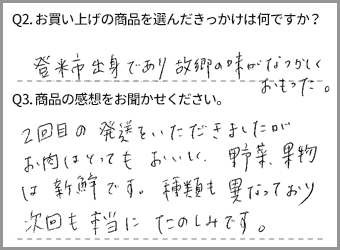 Q2. お買い上げの商品を選んだきっかけは何ですか？
登米市出身であり故郷の味がなつかしく
おもった。
Q3. 商品の感想をお聞かせください。
2回目の発送をいただきましたが
お肉はとっても おいしく、野菜、果物
は新鮮です。種類も異なっており
次回も本当に たのしみです。